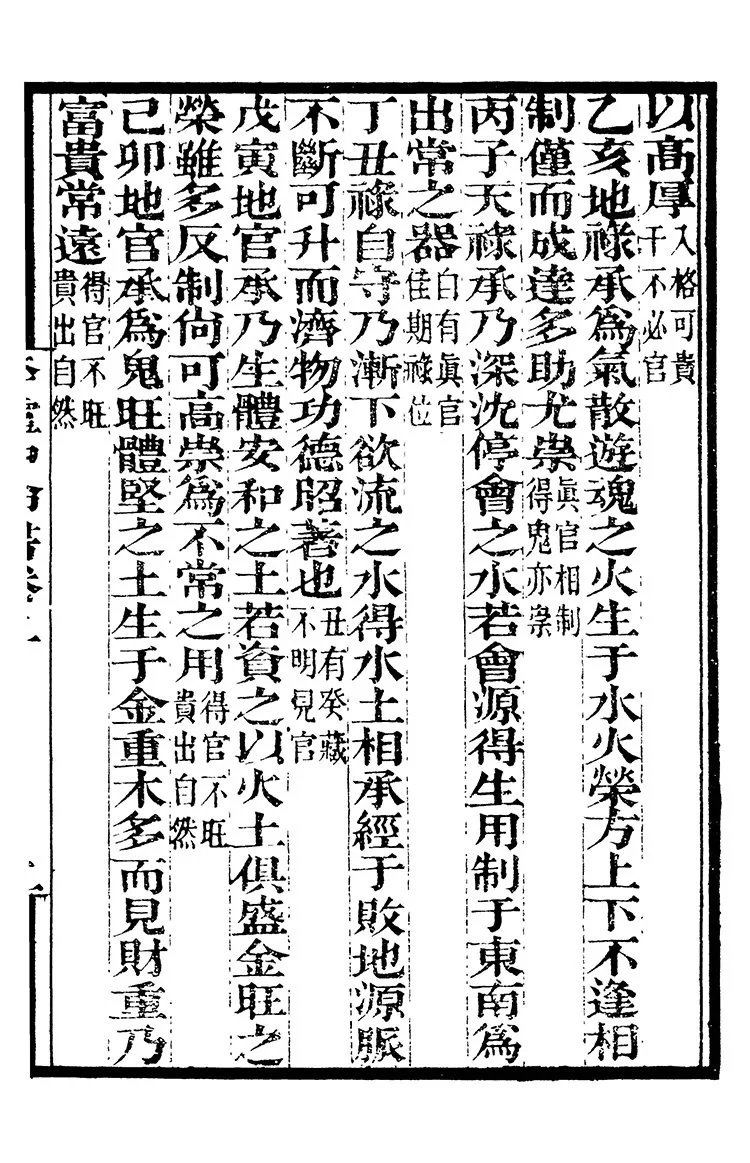 以高厚入格可貴干不必官
乙亥地祿承爲氣散遊魂之火生于水火榮方上下不逢相
制僅而成達多助尤崇眞官相制得鬼亦崇
丙子天祿承乃深沈停會之水若會源得生用制于東南爲
出常之器白有眞官佳期祿位
丁丑祿自守乃漸下欲流之水得水土相承經于敗地源脈
不斷可升而濟物功德昭著也丑有癸藏不明見官
戊寅地官承乃生體安和之土若資之以火土俱盛金旺之
榮雖多反制尙可高崇爲不常之用得官不旺貴出自然
己卯地官承爲鬼旺體堅之土生于金重木多而見財重乃
富貴常遠得官不旺貴出自然